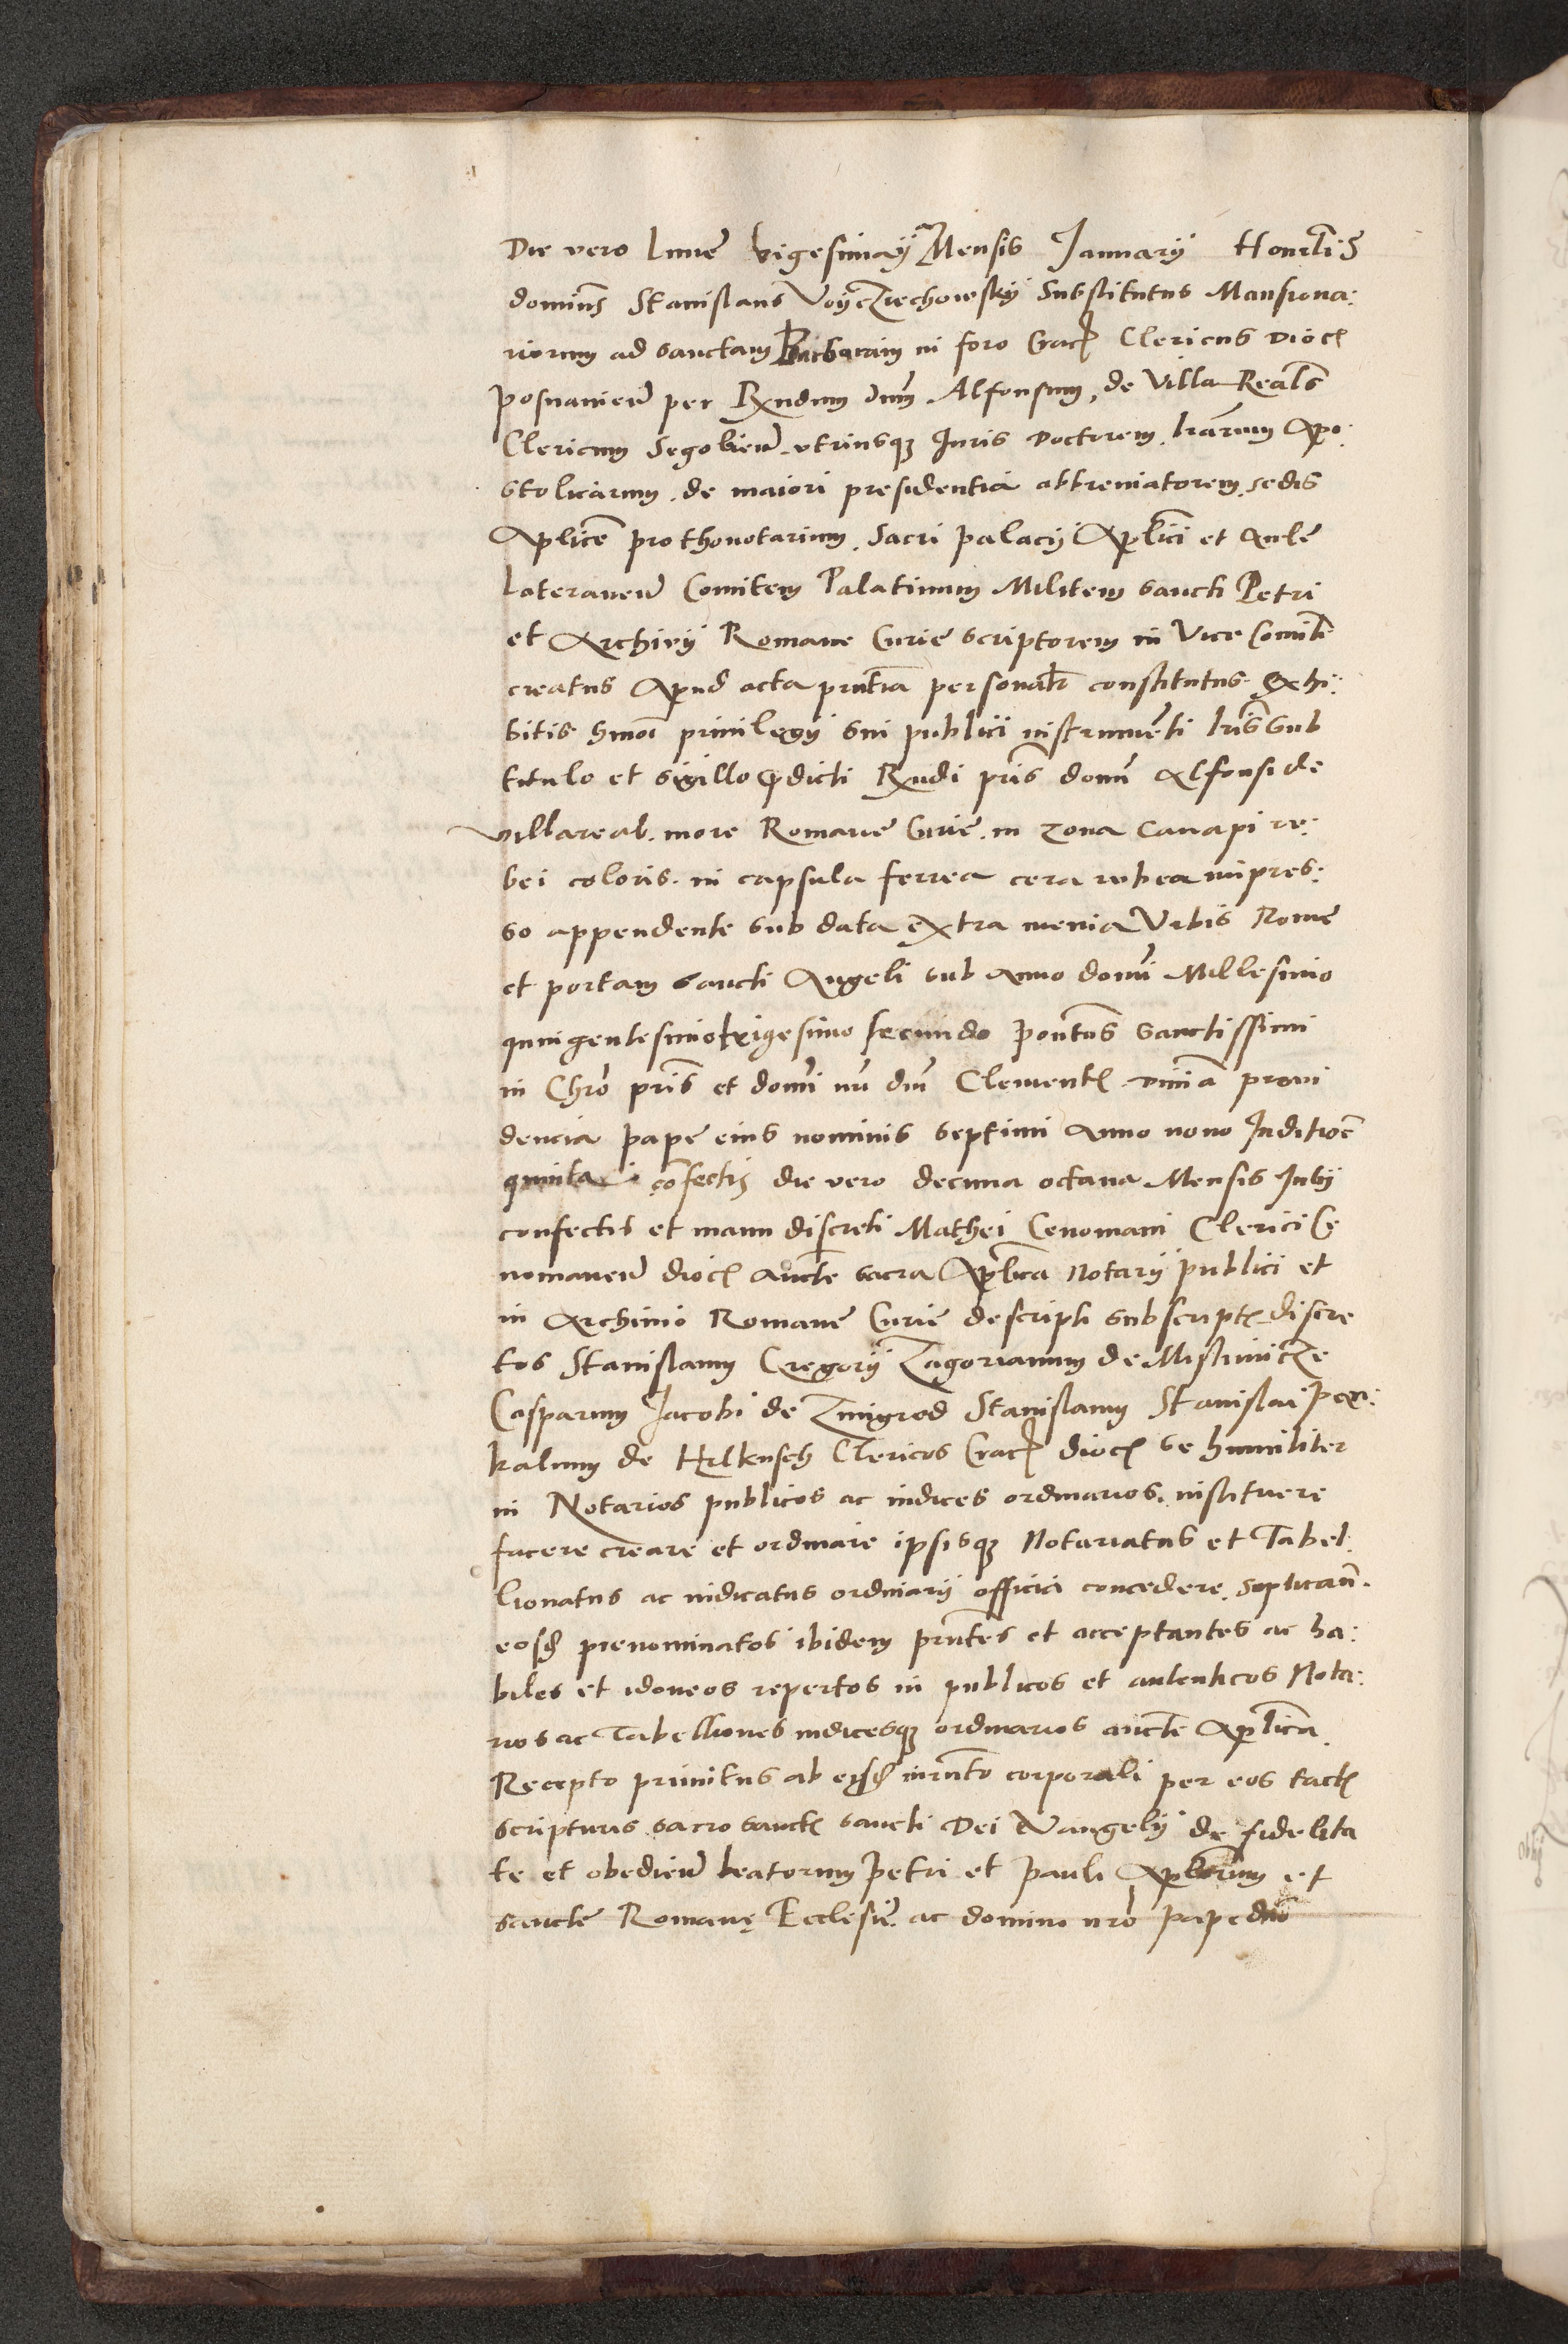 Die vero lune vigesima Mensis Januarij Honrlis
dominus Stanislaus Voyczuechowsky Substitutus Mansiona:
riorum ad sanctam Barbaram in foro Crac Clericus dioc
posnanien per Rndum dnm Alfonsum de Villa Reals
Clericum Segobien utriusq Juris doctorem lrarum Apo:
stolicarum de maiori presidentia abbreviatorem sedis
Aplice prothonotarium Sacri palacij Aplici et Aule
lateranen Comitem Palatinum Militem sancti Petri
et Archivij Romane Curie scriptorem in Vice Comite
creatus Apud acta pntia personalr constitutus Exhi:
bitis hmoi privilegij sui publici instrumenti lris sub
titulo et sigillo pdicti Rndi pris domi Alfonsi de
villareal more Romane Curie in zona Canapi ru:
bei coloris in capsula ferrea cera rubea impres:
so appendente sub data extra menia Urbis Rome
et portam sancti Angeli sub Anno domi Millesimo
quingentesimotrigesimo secundo pontus sanctissimi
in Chro pris et domi nri dni Clement divia provi
dencia pape eius nominis septimi Anno nono Inditioe
quinta confectis die vero decima octava Mensis Julij
confectis et manu discreti Mathei Cenomani Clerici Ce
nomanen dioc aucte sacra Aplica Notarij publici et
in Archivio Romane Curie descripti subscript discre
tos Stanislaum Gregorij Zagorianum de Mistinicze
Casparum Jacobi de Zmigrod Stanislaum Stanislai pex:
kalium de Hilkusch Clericos Crac dioc se humiliter
in Notarios publicos ac iudices ordinarios instituere
facere creare et ordinare ipsisq Notariatus et Tabel:
lionatus ac iudicatus ordinarij officii concedere suplican
eosd prenominatos ibidem pntes et acceptantes ac ha:
biles et idoneos repertos in publicos et autenticos Nota:
rios ac Tabelliones iudicesq ordinarios aucte Aplica
Recepto primitus ab eisd iurnto corporali per eos tact
scripturis sacro sanct sancti Dei Evangelij de fidelita
te et obedien beatorum Petri et Pauli Aplorum et
sancte Romane Ecclesie ac domino nro pape dno